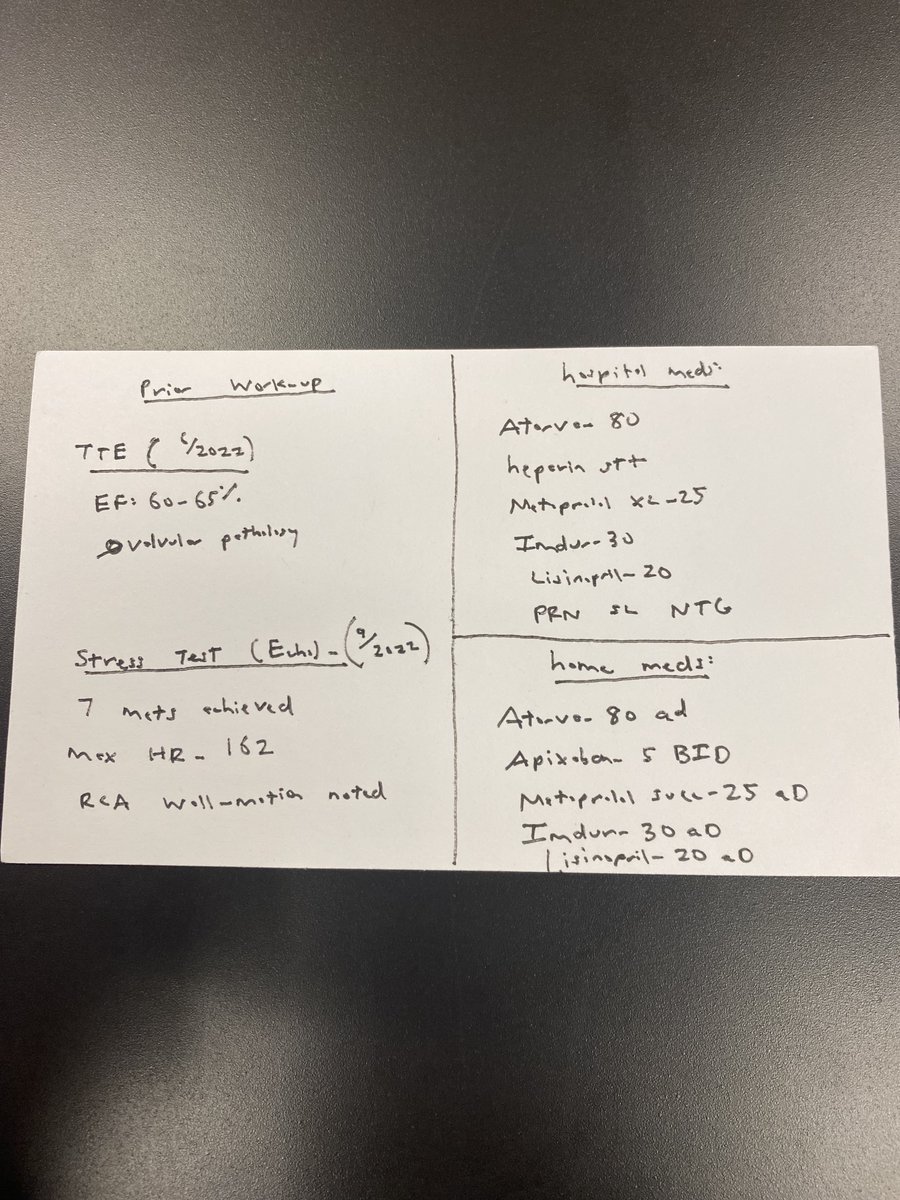 Prior Work-up
TTE (6/2022)
EF: 60-65%
∅ valvular pathology
Stress Test (Echo) - (9/2022)
7 mets achieved
Max HR - 162
RCA Wall-motion noted
hospital meds:
Atorva- 80
heparin gtt
Metoprolol XL-25
Imdur- 30
Lisinopril- 20
PRN SL NTG
home meds:
Atorva- 80 qd
Apixaban- 5 BID
Metoprolol succ-25 QD
Imdur- 30 QD
Lisinopril- 20 QD